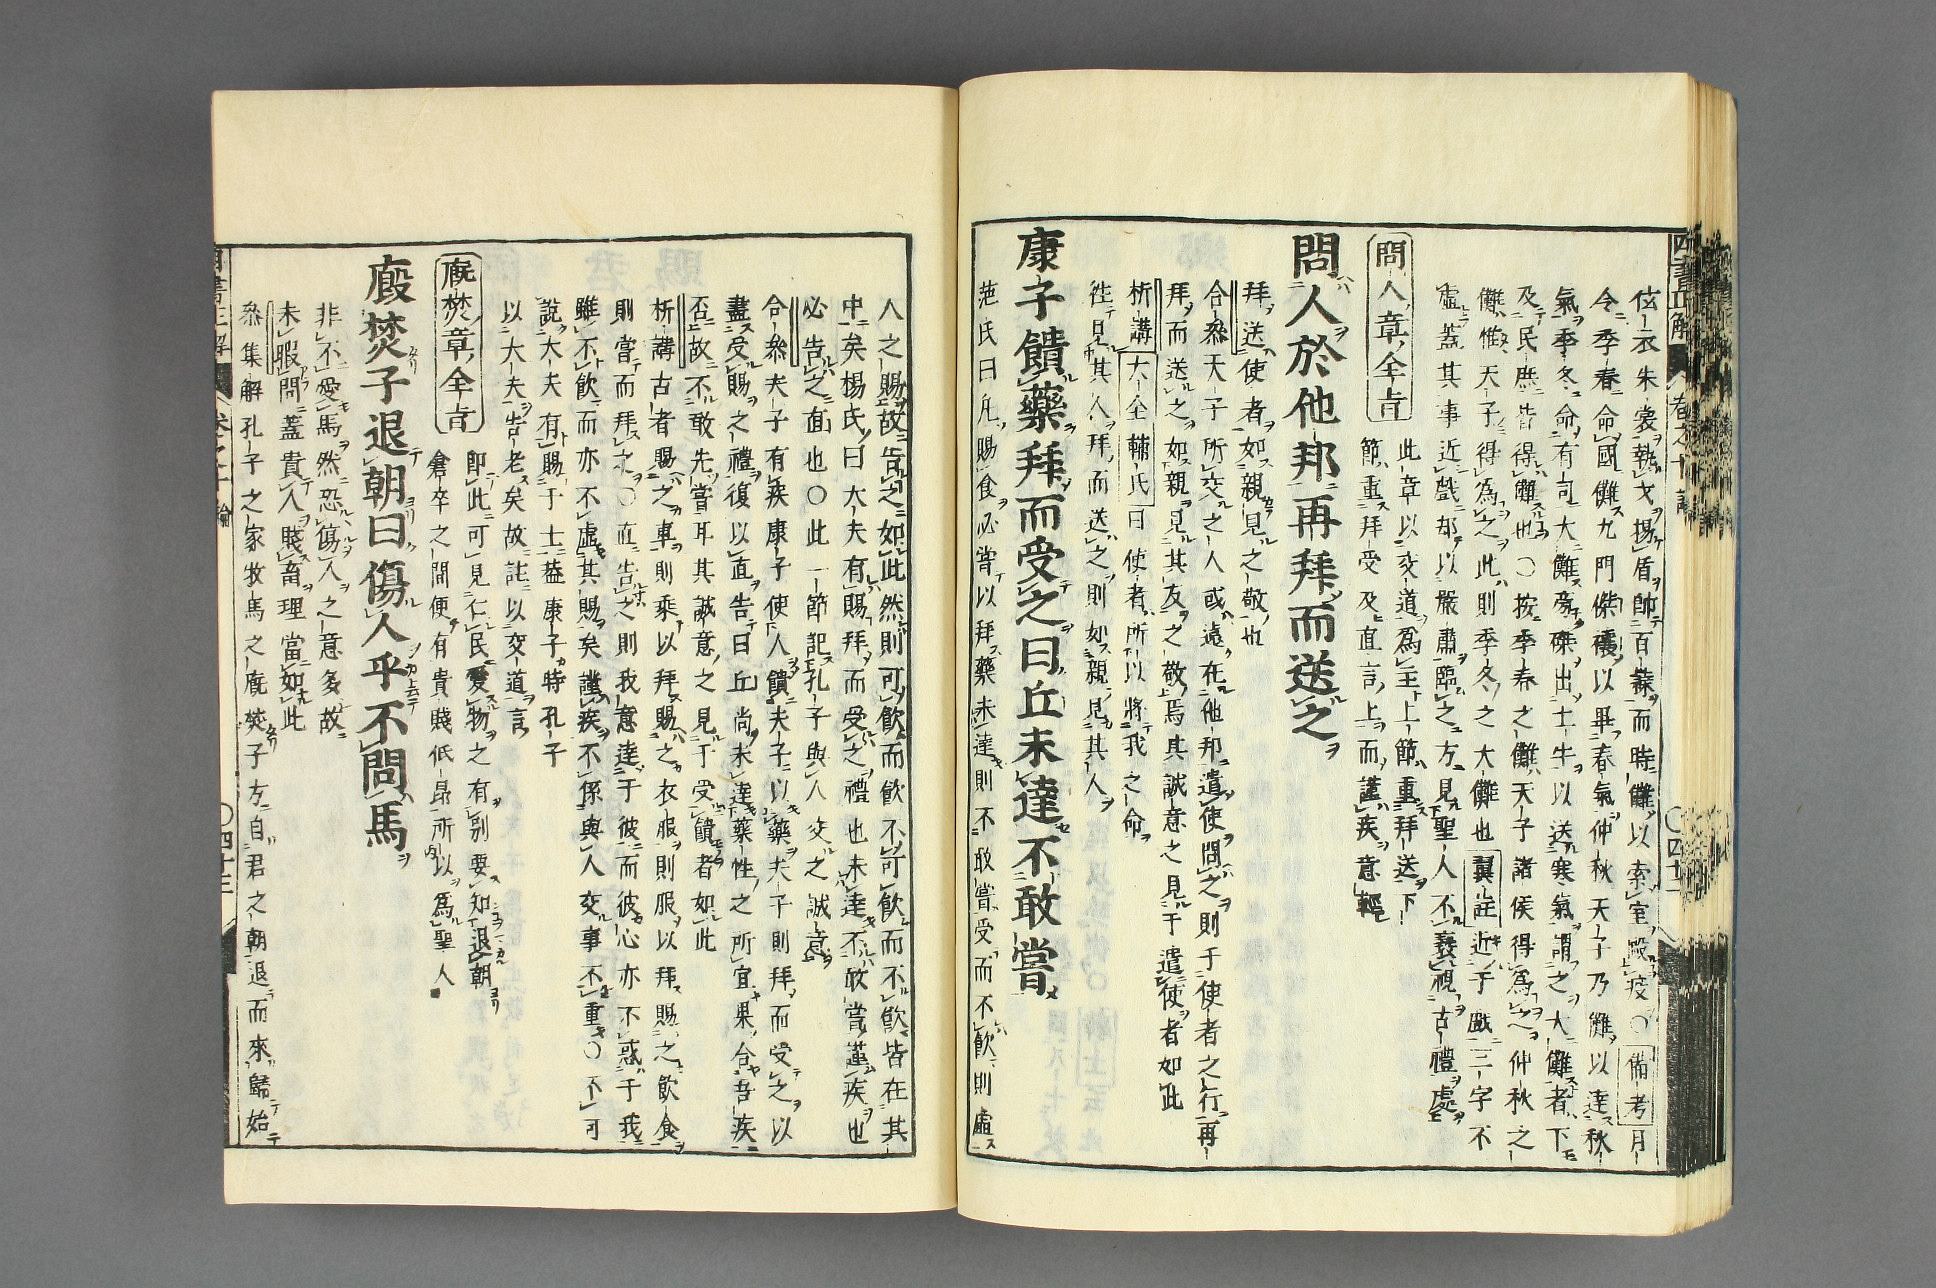 四書正解
卷之十 論
〇四十二
玄衣朱裳執戈揚盾帥百隸而時儺以索室毆疫〇備考月
令季春命國儺九門磔禳以畢春氣仲秋天子乃儺以達秋
氣季冬命有司大儺旁磔出土牛以送寒氣謂之大儺者下
及民庶皆得儺也〇按季春之儺天子諸侯得為之仲秋之
儺惟天子得為之此則季冬之大儺也翼註近于戲三字不
虛蓋其事近戲却以嚴肅臨之方見聖人不褻視古禮處
問人章全旨
此章以交道為主上節重拜送下
節重拜受及直言上而謹疾意輕
問人於他邦再拜而送之
拜送使者如親見之敬也
合參夫子所交之人或遠在他邦遣使問之則于使者之行再
拜而送之如親見其友之敬焉其誠意之見于遣使者如此
析講大全輔氏曰使者所以將我之命
往見其人拜而送之則如親見其人
康子饋藥拜而受之曰丘未達不敢嘗
范氏曰凡賜食必嘗以拜藥未達則不敢嘗受而不飲則虛
人之賜故告之如此然則可飲而飲不可飲而不飲皆在其
中矣楊氏曰大夫有賜拜而受之禮也未達不敢嘗謹疾也
必告之直也〇此一節記孔子與人交之誠意
合參夫子有疾康子使人饋夫子以藥夫子則拜而受之以
盡受賜之禮復以直告曰丘尚未達藥性之所宜果合吾疾
否故不敢先嘗耳其誠意之見于受饋者如此
析講古者賜之車則乘以拜賜之衣服則服以拜賜之飲食
則嘗而拜之〇直告之則我意達于彼而彼心亦不惑于我
雖不飲而亦不虛其賜矣謹疾不係與人交事不重〇不可
說大夫有賜于士蓋康子時孔子
以大夫告老矣故註以交道言
廐焚章全旨
即此可見仁民愛物之有別要知退朝
倉卒之間便有貴賤低昂所以為聖人
廐焚子退朝曰傷人乎不問馬
非不愛馬然恐傷人之意多故
未暇問蓋貴人賤畜理當如此
參集解孔子之家牧馬之廐焚子方自君之朝退而來歸始
四書正解
卷之十 論
〇四十三